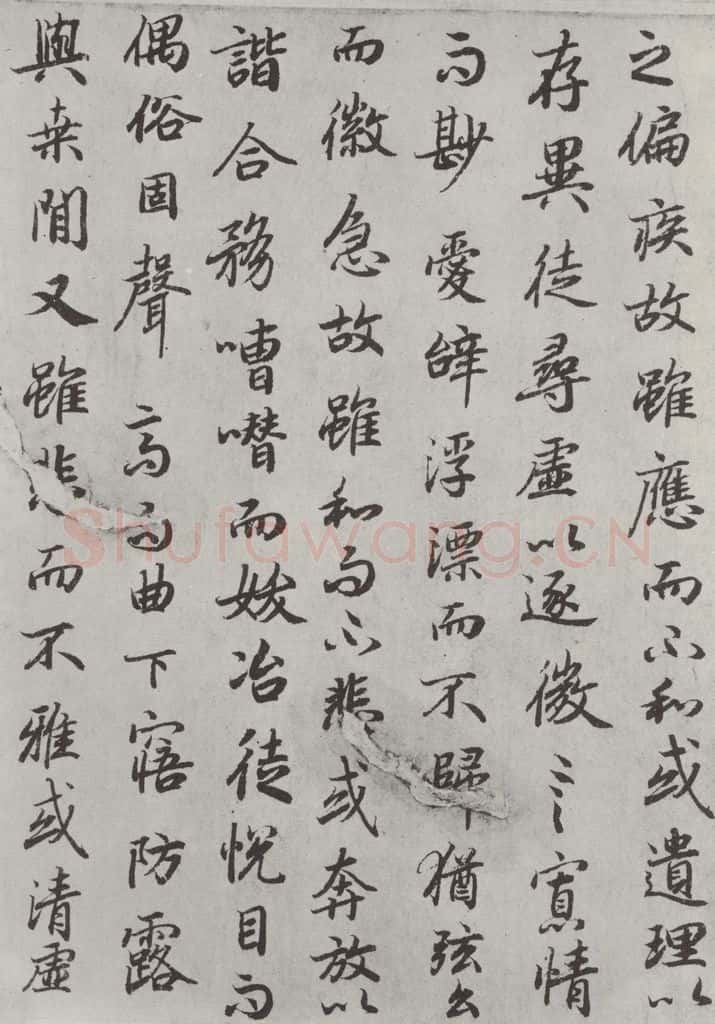 之偏疾故雖應而不和或遺理以
存異徒尋虛以逐微言寡情
而尠愛辝浮漂而不歸猶弦幺
而徽急故雖和而不悲或奔放以
諧合務嘈噆而妖冶徒悅目而
偶俗固聲高而曲下寤防露
與桒間又雖悲而不雅或清虛
Shufawang.CN